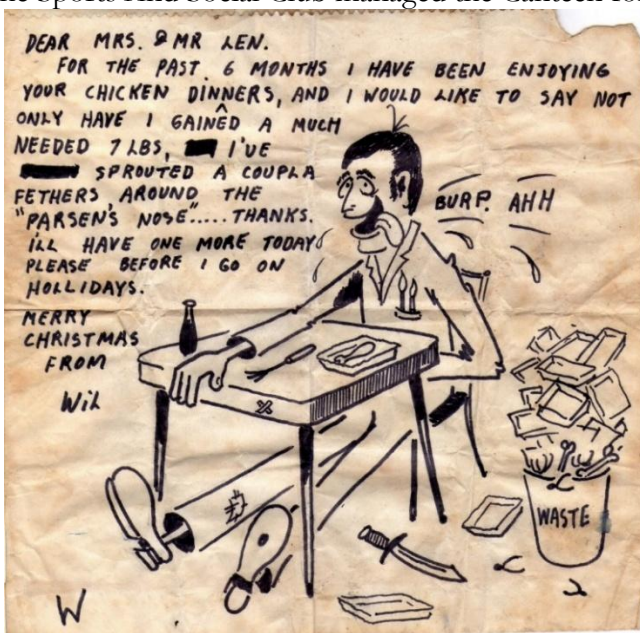 he Sports And Social Club managed the Canteen fo
DEAR MRS. & MR LEN.
FOR THE PAST 6 MONTHS I HAVE BEEN ENJOYING
YOUR CHICKEN DINNERS, AND I WOULD LIKE TO SAY NOT
ONLY HAVE I GAINED A MUCH
NEEDED 7 LBS, I'VE
SPROUTED A COUPLA
FETHERS AROUND THE
"PARSEN'S NOSE"..... THANKS.
I'LL HAVE ONE MORE TODAY
PLEASE BEFORE I GO ON
HOLLIDAYS.
MERRY
CHRISTMAS
FROM
Wil
BURP. AHH
WASTE
W